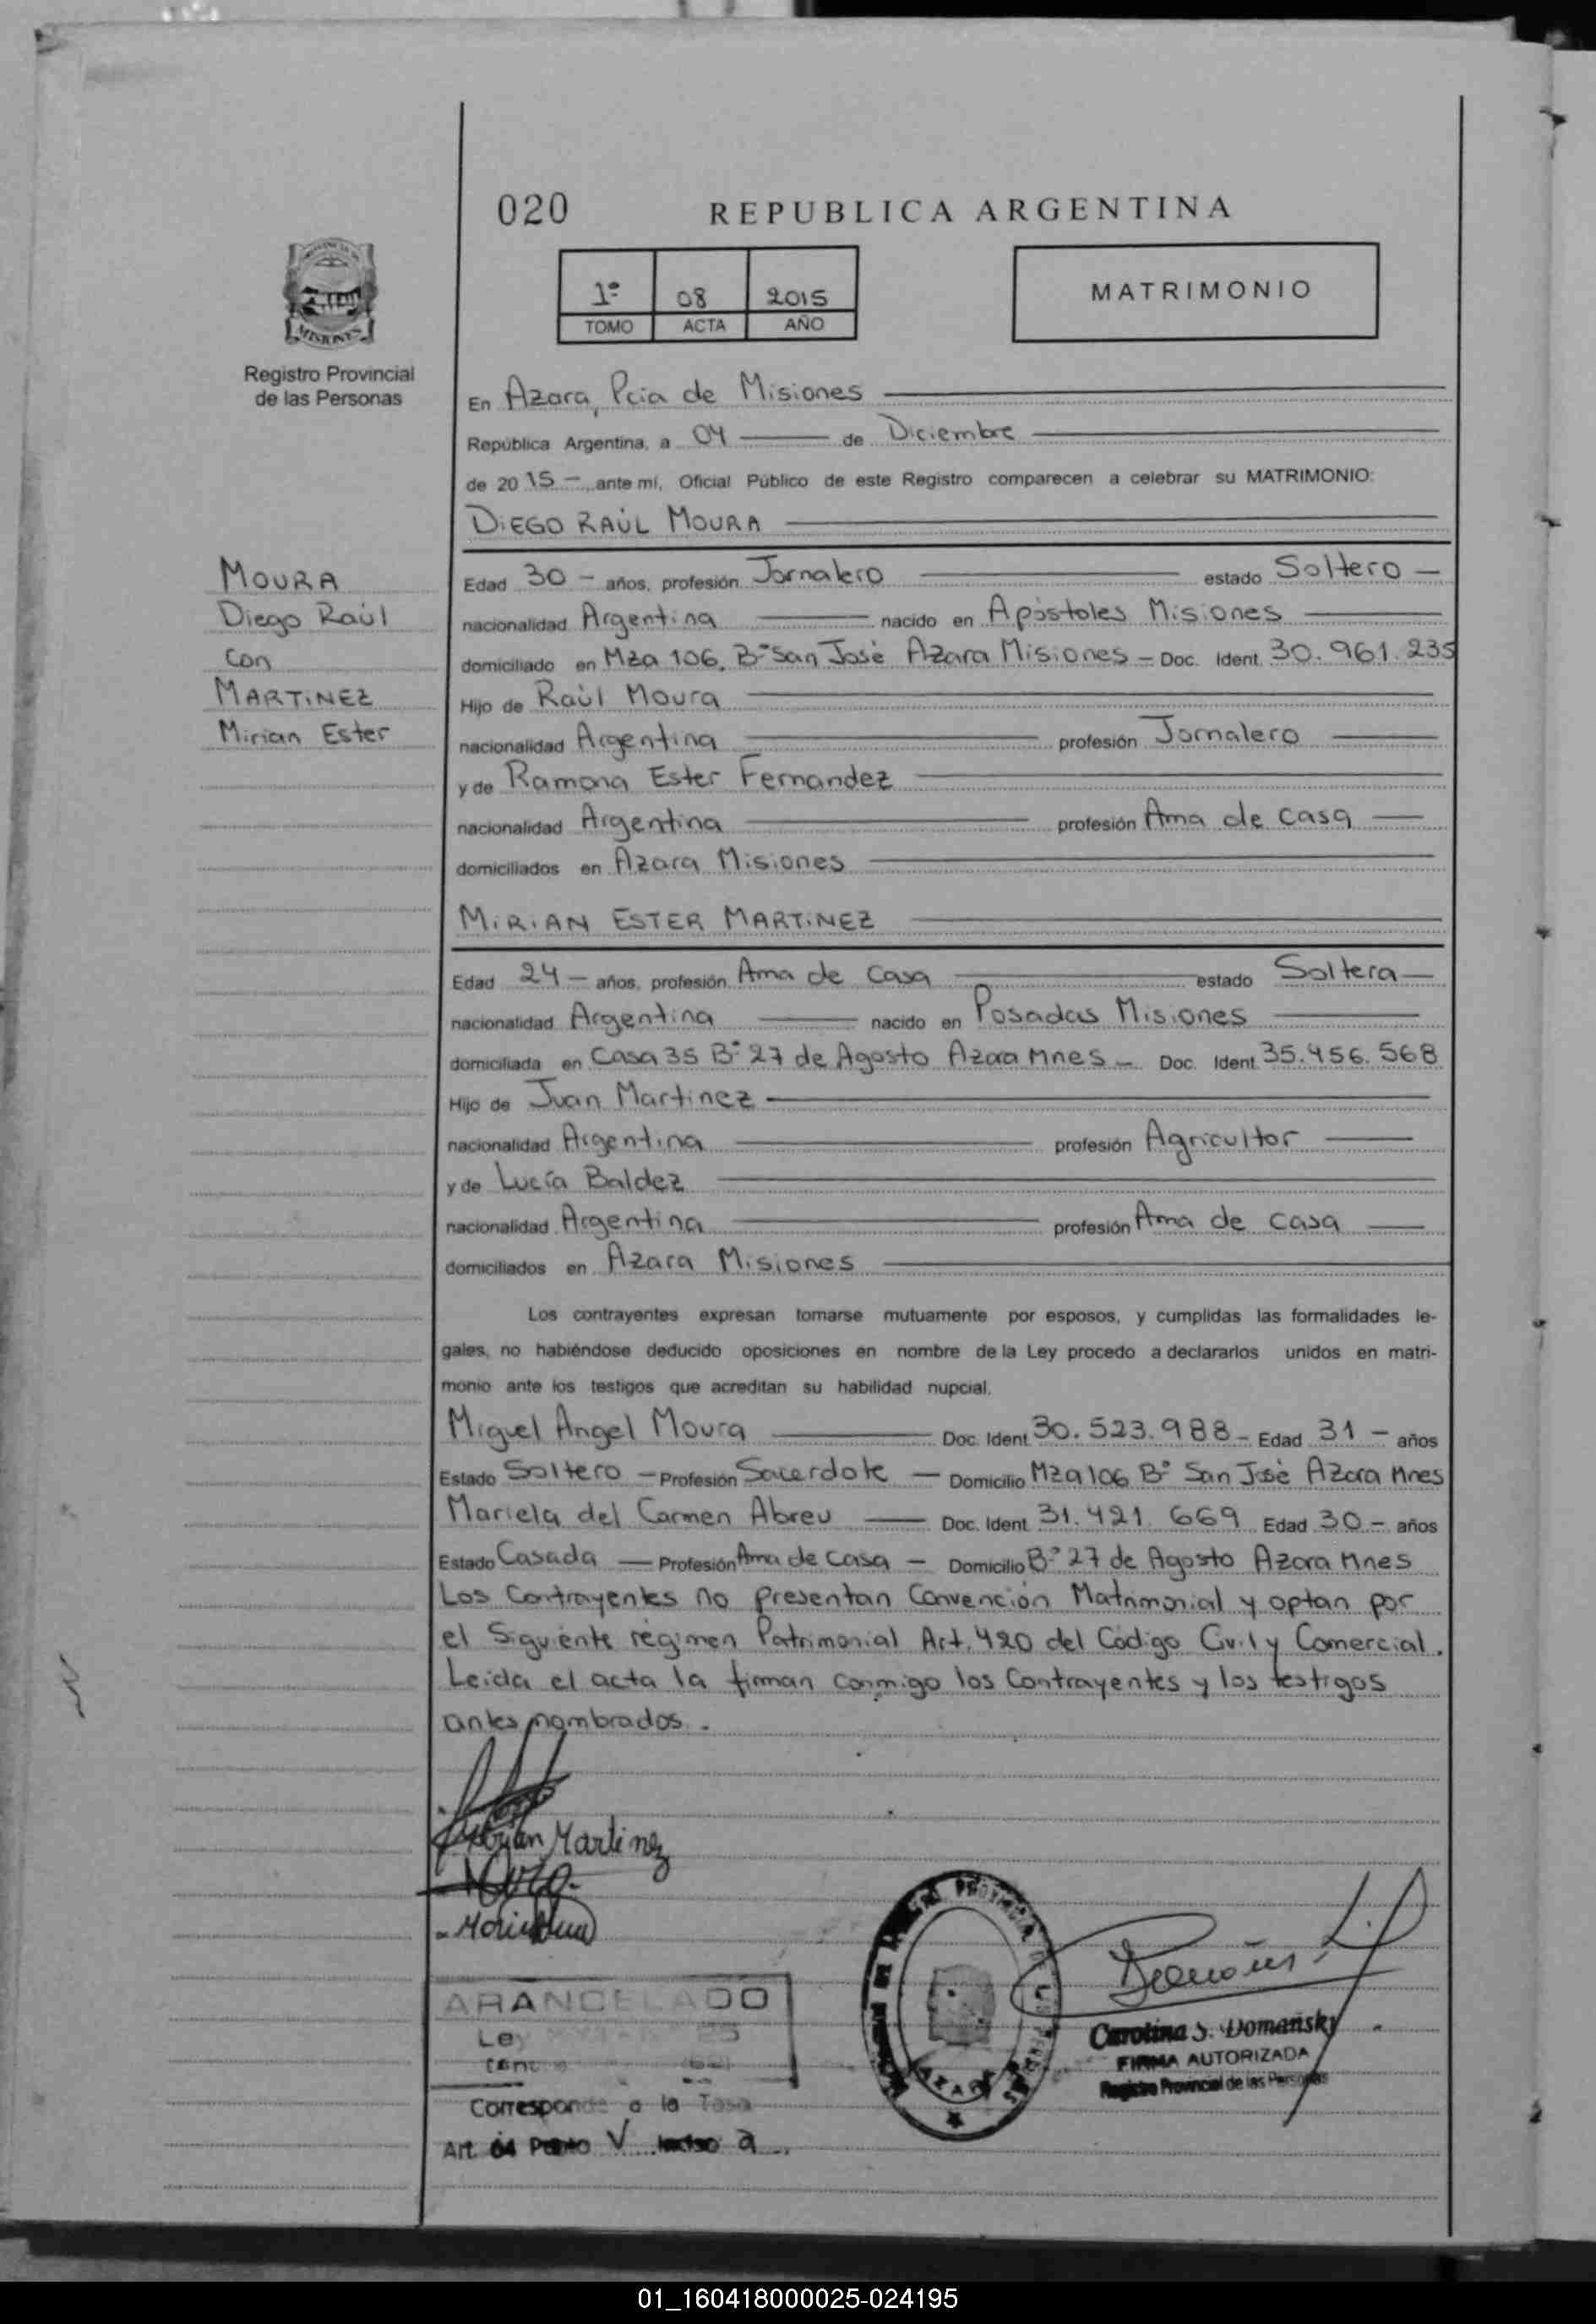 020 REPUBLICA ARGENTINA
1º 08 2015
TOMO ACTA AÑO
MATRIMONIO
MISIONES
Registro Provincial
de las Personas
En Azara, Pcia de Misiones
República Argentina, a 04 de Diciembre
de 2015 - ante mí, Oficial Público de este Registro comparecen a celebrar su MATRIMONIO:
DIEGO RAÚL MOURA
MOURA
Diego Raúl
con
MARTINEZ
Mirian Ester
Edad 30 - años, profesión Jornalero estado Soltero -
nacionalidad Argentina nacido en Apóstoles Misiones
domiciliado en Mza 106, Bº San José Azara Misiones - Doc. Ident. 30.961.235
Hijo de Raúl Moura
nacionalidad Argentina profesión Jornalero
y de Ramona Ester Fernandez
nacionalidad Argentina profesión Ama de casa
domiciliados en Azara Misiones
MIRIAN ESTER MARTINEZ
Edad 24 - años, profesión Ama de casa estado Soltera
nacionalidad Argentina nacido en Posadas Misiones
domiciliada en Casa 35 Bº 27 de Agosto Azara Mnes - Doc. Ident. 35.456.568
Hijo de Juan Martinez
nacionalidad Argentina profesión Agricultor
y de Lucía Baldez
nacionalidad Argentina profesión Ama de casa
domiciliados en Azara Misiones
Los contrayentes expresan tomarse mutuamente por esposos, y cumplidas las formalidades le-
gales, no habiéndose deducido oposiciones en nombre de la Ley procedo a declararlos unidos en matri-
monio ante los testigos que acreditan su habilidad nupcial.
Miguel Angel Moura Doc. Ident. 30.523.988 - Edad 31 - años
Estado Soltero - Profesión Sacerdote - Domicilio Mza 106 Bº San José Azara Mnes
Mariela del Carmen Abreu Doc. Ident. 31.421.669 Edad 30 - años
Estado Casada - Profesión Ama de casa - Domicilio Bº 27 de Agosto Azara Mnes
Los Contrayentes no presentan Convención Matrimonial y optan por
el Siguiente régimen Patrimonial Art. 420 del Código Civil y Comercial.
Leída el acta la firman conmigo los Contrayentes y los testigos
antes nombrados.
Martinez
ARANCELADO
Ley
Corresponde a la Tasa
Art. 04 Punto V Inciso a
AZARA
Carolina S. Domañsky
FIRMA AUTORIZADA
Registro Provincial de las Personas
01_160418000025-024195